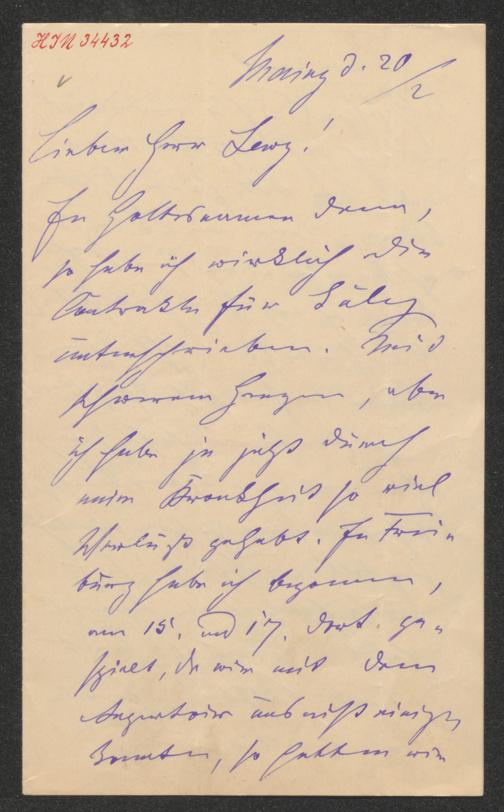 HIN 34432
Mainz d. 20/2
Lieber Herr Lewy!
In Gottesnamen denn,
so habe ich wirklich die
Contrakte für
unterschrieben. Mit
schwerem Herzen, aber
ich habe ja jetzt durch
meine Krankheit so viel
Verlust gehabt. In Frei-
burg habe ich begonnen,
am 15. und 17. dort ge-
spielt, da wir mit dem
Repertoir uns nicht einigen
konnten, so hatten wir